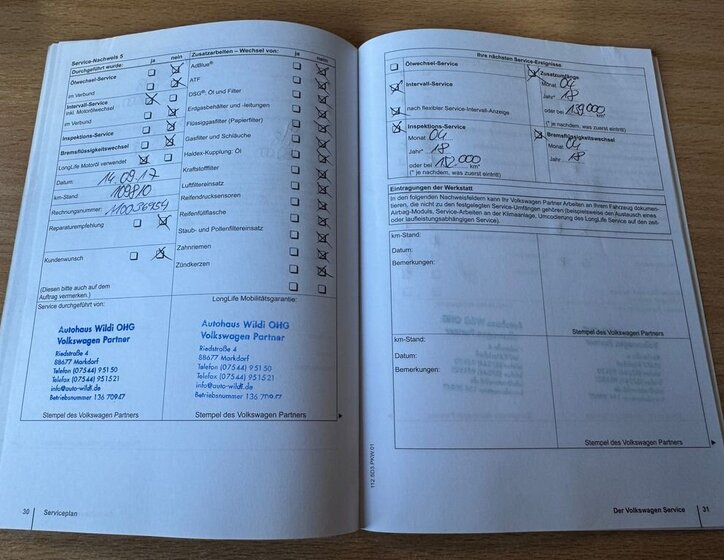 Service-Nachweis 5
Durchgeführt wurde: ja nein
Ölwechsel-Service
im Verbund
Intervall-Service
inkl. Motorölwechsel
im Verbund
Inspektions-Service
Bremsflüssigkeitswechsel
LongLife Motoröl verwendet
Datum: 14.09.17
km-Stand: 109810
Rechnungsnummer:
Reparaturempfehlung
Kundenwunsch
(Diesen bitte auch auf dem
Auftrag vermerken.)
Zusatzarbeiten – Wechsel von: ja nein
AdBlue®
ATF
DSG®: Öl und Filter
Erdgasbehälter und -leitungen
Flüssiggasfilter (Papierfilter)
Gasfilter und Schläuche
Haldex-Kupplung: Öl
Kraftstofffilter
Luftfiltereinsatz
Reifendrucksensoren
Reifenfüllflasche
Staub- und Pollenfiltereinsatz
Zahnriemen
Zündkerzen
Service durchgeführt von:
Autohaus Wildi OHG
Volkswagen Partner
Riedstraße 4
88677 Markdorf
Telefon (07544) 95150
Telefax (07544) 951521
info@auto-wildi.de
Betriebsnummer 136 70947
Stempel des Volkswagen Partners
LongLife Mobilitätsgarantie:
Autohaus Wildi OHG
Volkswagen Partner
Riedstraße 4
88677 Markdorf
Telefon (07544) 95150
Telefax (07544) 951521
info@auto-wildi.de
Betriebsnummer 136 70947
Stempel des Volkswagen Partners
30 Serviceplan
Ihre nächsten Service-Ereignisse
Ölwechsel-Service
Intervall-Service
nach flexibler Service-Intervall-Anzeige
Zusatzumfänge
Monat 04
Jahr* 18
oder bei 139000 km*
(* je nachdem, was zuerst eintritt)
Inspektions-Service
Monat 04
Jahr* 18
oder bei 112000 km*
(* je nachdem, was zuerst eintritt)
Bremsflüssigkeitswechsel
Monat 04
Jahr 18
Eintragungen der Werkstatt
In den folgenden Nachweisfeldern kann Ihr Volkswagen Partner Arbeiten an Ihrem Fahrzeug dokumen-
tieren, die nicht zu den festgelegten Service-Umfängen gehören (beispielsweise den Austausch eines
Airbag-Moduls, Service-Arbeiten an der Klimaanlage, Umcodierung des LongLife Service auf den zeit-
oder laufleistungsabhängigen Service).
km-Stand:
Datum:
Bemerkungen:
Stempel des Volkswagen Partners
km-Stand:
Datum:
Bemerkungen:
Stempel des Volkswagen Partners
Der Volkswagen Service 31